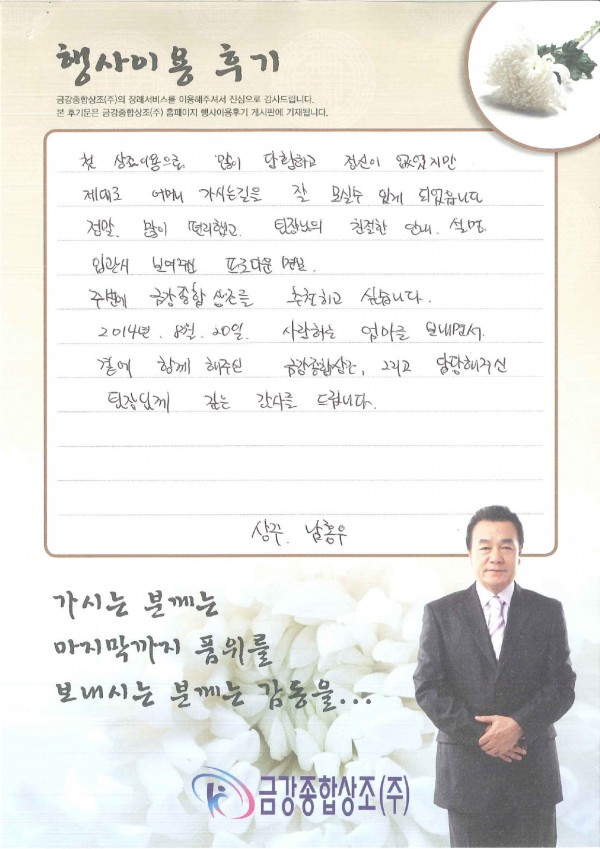 행사이용 후기
금강종합상조(주)의 장례서비스를 이용해주셔서 진심으로 감사드립니다.
본 후기문은 금강종합상조(주) 홈페이지 행사이용후기 게시판에 기재됩니다.
첫 상조이용으로 많이 당황하고 정신이 없었지만
제대로 어머니 가시는길을 잘 모실수 있게 되었습니다
정말. 많이 편리했고. 팀장님의 친절한 안내. 설명.
입관시 보여주신 프로다운 면모.
주변에 금강종합상조를 추천하고 싶습니다.
2014년. 8월. 20일. 사랑하는 엄마를 보내면서.
곁에 함께 해주신 금강종합상조, 그리고 담당해주신
팀장님께 깊은 감사를 드립니다.
상주. 남홍우
가시는 분께는
마지막까지 품위를
보내시는 분께는 감동을...
금강종합상조(주)